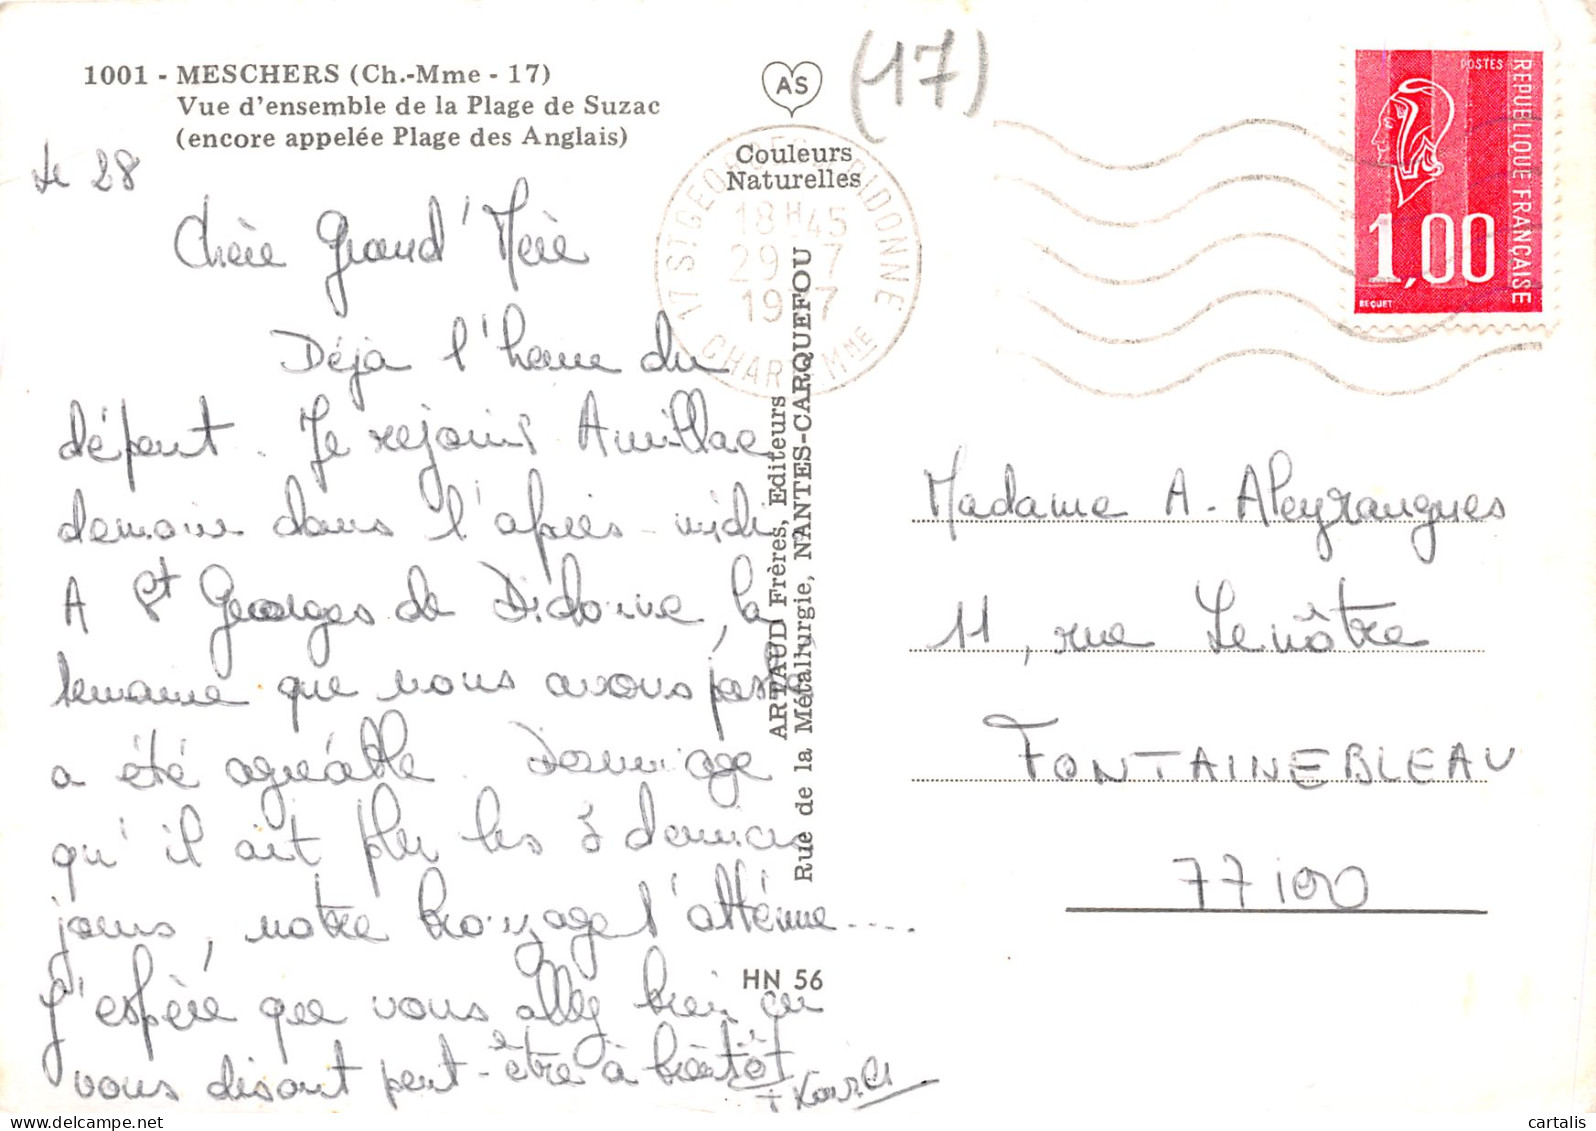 1001 - MESCHERS (Ch.-Mme - 17)
Vue d'ensemble de la Plage de Suzac
(encore appelée Plage des Anglais)
AS
Couleurs
Naturelles
(17)
17 ST GEORGES DE DIDONNE
18H45
29 7
19 7
CHAR MME
POSTES
REPUBLIQUE FRANÇAISE
1,00
BEQUET
le 28
Chère Grand'Mère
Déjà l'heure du
départ. Je rejoins Aurillac
demain dans l'après-midi
A St Georges de Didonne, la
semaine que nous avons passé
a été agréable. Dommage
qu'il ait plu les 3 derniers
jours, notre bronzage l'atténue....
J'espère que vous allez bien en
vous disant peut-être à bientôt
ARTAUD Frères, Editeurs
Rue de la Métallurgie, NANTES-CARQUEFOU
HN 56
Madame A. Aleyrangues
11, rue Lenôtre
FONTAINEBLEAU
77100
cartalis